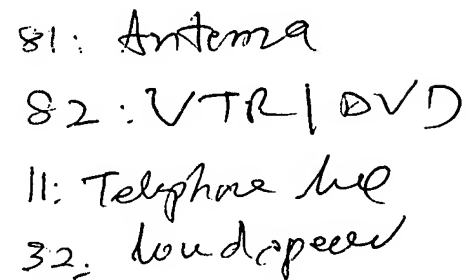 81: Antenna
82: VTR/DVD
11: Telephone line
32: loudspeaker